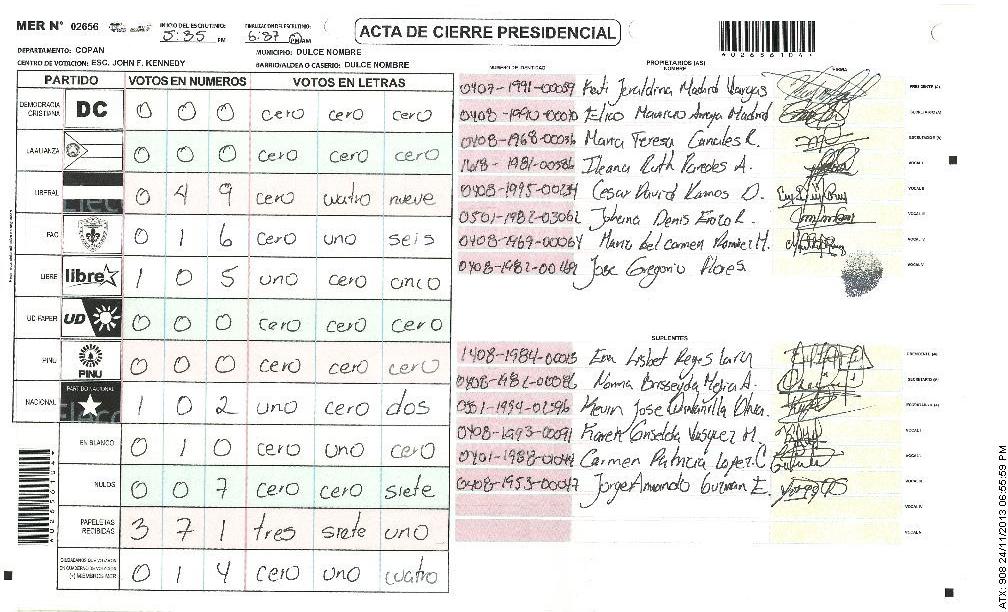 MER N° 02656
INICIO DEL ESCRUTINIO: 5:35 PM
FINALIZACION DEL ESCRUTINIO: 6:37 PM
ACTA DE CIERRE PRESIDENCIAL
DEPARTAMENTO: COPAN
MUNICIPIO: DULCE NOMBRE
CENTRO DE VOTACION: ESC. JOHN F. KENNEDY
BARRIO/ALDEA O CASERIO: DULCE NOMBRE
PARTIDO VOTOS EN NUMEROS VOTOS EN LETRAS
DEMOCRACIA CRISTIANA DC 0 0 0 cero cero cero
LA ALIANZA 0 0 0 cero cero cero
LIBERAL 0 4 9 cero cuatro nueve
PAC 0 1 6 cero uno seis
LIBRE libre 1 0 5 uno cero cinco
UD FAPER UD 0 0 0 cero cero cero
PINU PINU 0 0 0 cero cero cero
NACIONAL PARTIDO NACIONAL 1 0 2 uno cero dos
EN BLANCO 0 1 0 cero uno cero
NULOS 0 0 7 cero cero siete
PAPELETAS RECIBIDAS 3 7 1 tres siete uno
CIUDADANOS QUE VOTARON EN CUADERNO DE VOTACION (+) MIEMBROS MER 0 1 4 cero uno cuatro
NUMERO DE IDENTIDAD PROPIETARIOS (AS) NOMBRE FIRMA
0407-1991-00059 Keti Jeraldina Madrid Vargas PRESIDENTE (A)
0408-1990-00070 Elico Mauricio Madrid SECRETARIO (A)
0408-1968-00036 Maria Teresa Canales R. ESCRUTADOR (A)
1618-1981-00586 Ileana Ruth Paredes A. VOCAL I
0408-1995-00234 Cesar David Ramos O. VOCAL II
0501-1982-03062 Johana Denis R. VOCAL III
0408-1967-00064 Maria del carmen Ramirez H. VOCAL IV
0408-1982-00149 Jose Gregorio Flores. VOCAL V
SUPLENTES
1408-1984-00013 Lisbet Reyes PRESIDENTE (A)
0408-1982-00086 Norma Brisseyda Mejia A. SECRETARIO (A)
0351-1994-02596 Kevin Jose ESCRUTADOR (A)
0408-1993-00091 Karen Griselda Vasquez M. VOCAL I
0401-1988-01044 Carmen Patricia Lopez C VOCAL II
0408-1953-00047 Jorge Armando Guzman E. VOCAL III
VOCAL IV
VOCAL V
ATX: 908 24/11/2013 06:55:59 PM